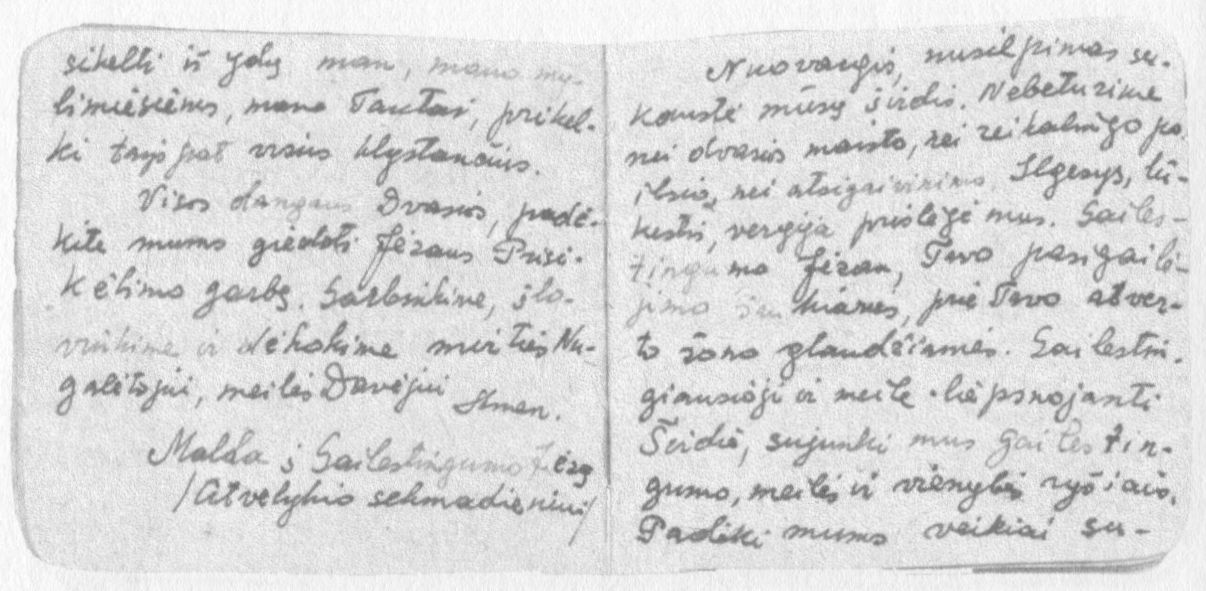 sikelti iš ydų man, mano my-
limiesiems, mano Tautai, prikel-
ki taip pat visus klystančius.
Visos dangaus Dvasios, padė-
kite mums giedoti Jėzaus Prisi-
kėlimo garbę. Garbinkime, šlo-
vinkime ir dėkokime mirties Nu-
galėtojui, meilės Davėjui Amen.
Malda į Gailestingumo Jėzų
/Atvelykio sekmadieniui/
Nuovargis, nusilpimas su-
kaustė mūsų širdis. Nebeturime
nei dvasios maisto, nei reikalingo po-
ilsio, nei atsigaivinimo. Ilgesys, lū-
kestis, vergija prislėgė mus. Gailes-
tingumo Jėzau, Tavo pasigailė-
jimo šaukiamės, prie Tavo atver-
to šono glaudžiamės. Gailestin-
giausioji ir meile liepsnojanti
Širdie, sujunki mus gailestin-
gumo, meilės ir vienybės ryšiais.
Padėki mums veikiai su-